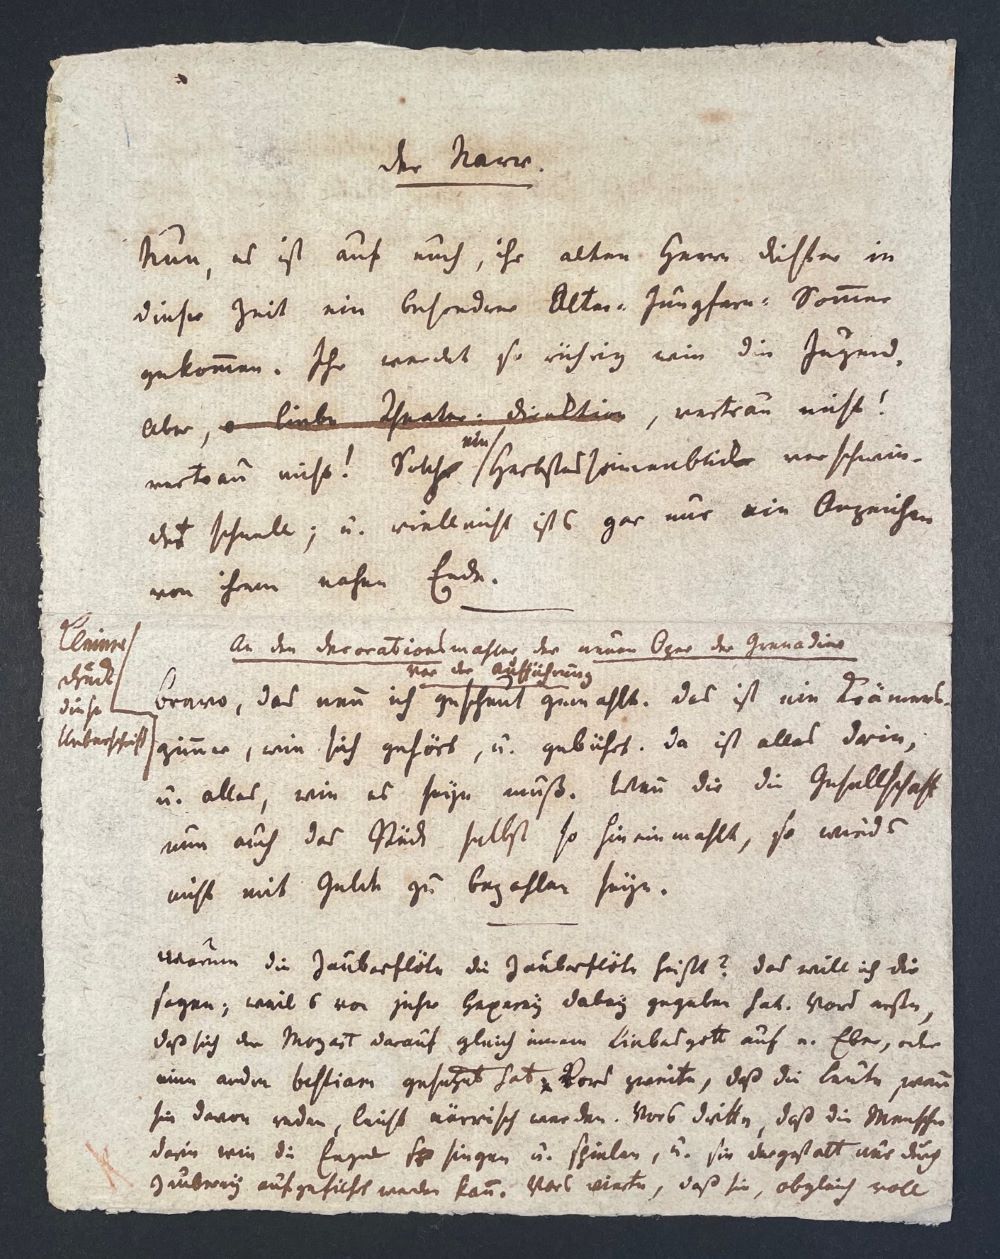 Der Narr.
Nun, es ist auf euch, ihr alten Herrn Dichter in
dieser Zeit ein besondrer Alter-Jungfern-Sommer
gekommen. Ihr werdet so rührig wie die Jugend.
Aber, o liebe Theater-direktion, vertrau nicht!
vertrau nicht! Solch ein Herbstes verschwin-
det schnell; u. vielleicht ists gar nur ein Anzeichen
von ihrem nahen Ende.
An den Decorationsmahler der neuen Oper der Grenadier
vor der Aufführung
Kleinre
Druck
diese
Ueberschrift
Bravo, das nenn ich gescheut gemahlt. Das ist ein Krämers-
zimmer, wie sich gehört, u. gebührt. Da ist alles drin,
u. alles, wie es seyn muß. Wenn die die Gesellschaft
nun auch das Stück selbst so hineinmahlt, so wirds
nicht mit Gelde zu bezahlen seyn.
Warum die Zauberflöte die Zauberflöte heißt? das will ich dir
sagen; weil s vor jeher Hexerey dabey gegeben hat. Vors erste,
daß sich der Mozart darauf gleich einem Liebesgott auf n. Eber, oder
einer andern bestiam gesetzt hat, Vors zweite, daß die Leute, wenn
sie davon reden, leicht närrisch werden. Vors dritte, daß die Menschen
darin wie die Engel singen u. spielen, u. sie dergestalt nur durch
Zauberey aufgeführt werden kann. Vors vierte, daß sie, obgleich voll